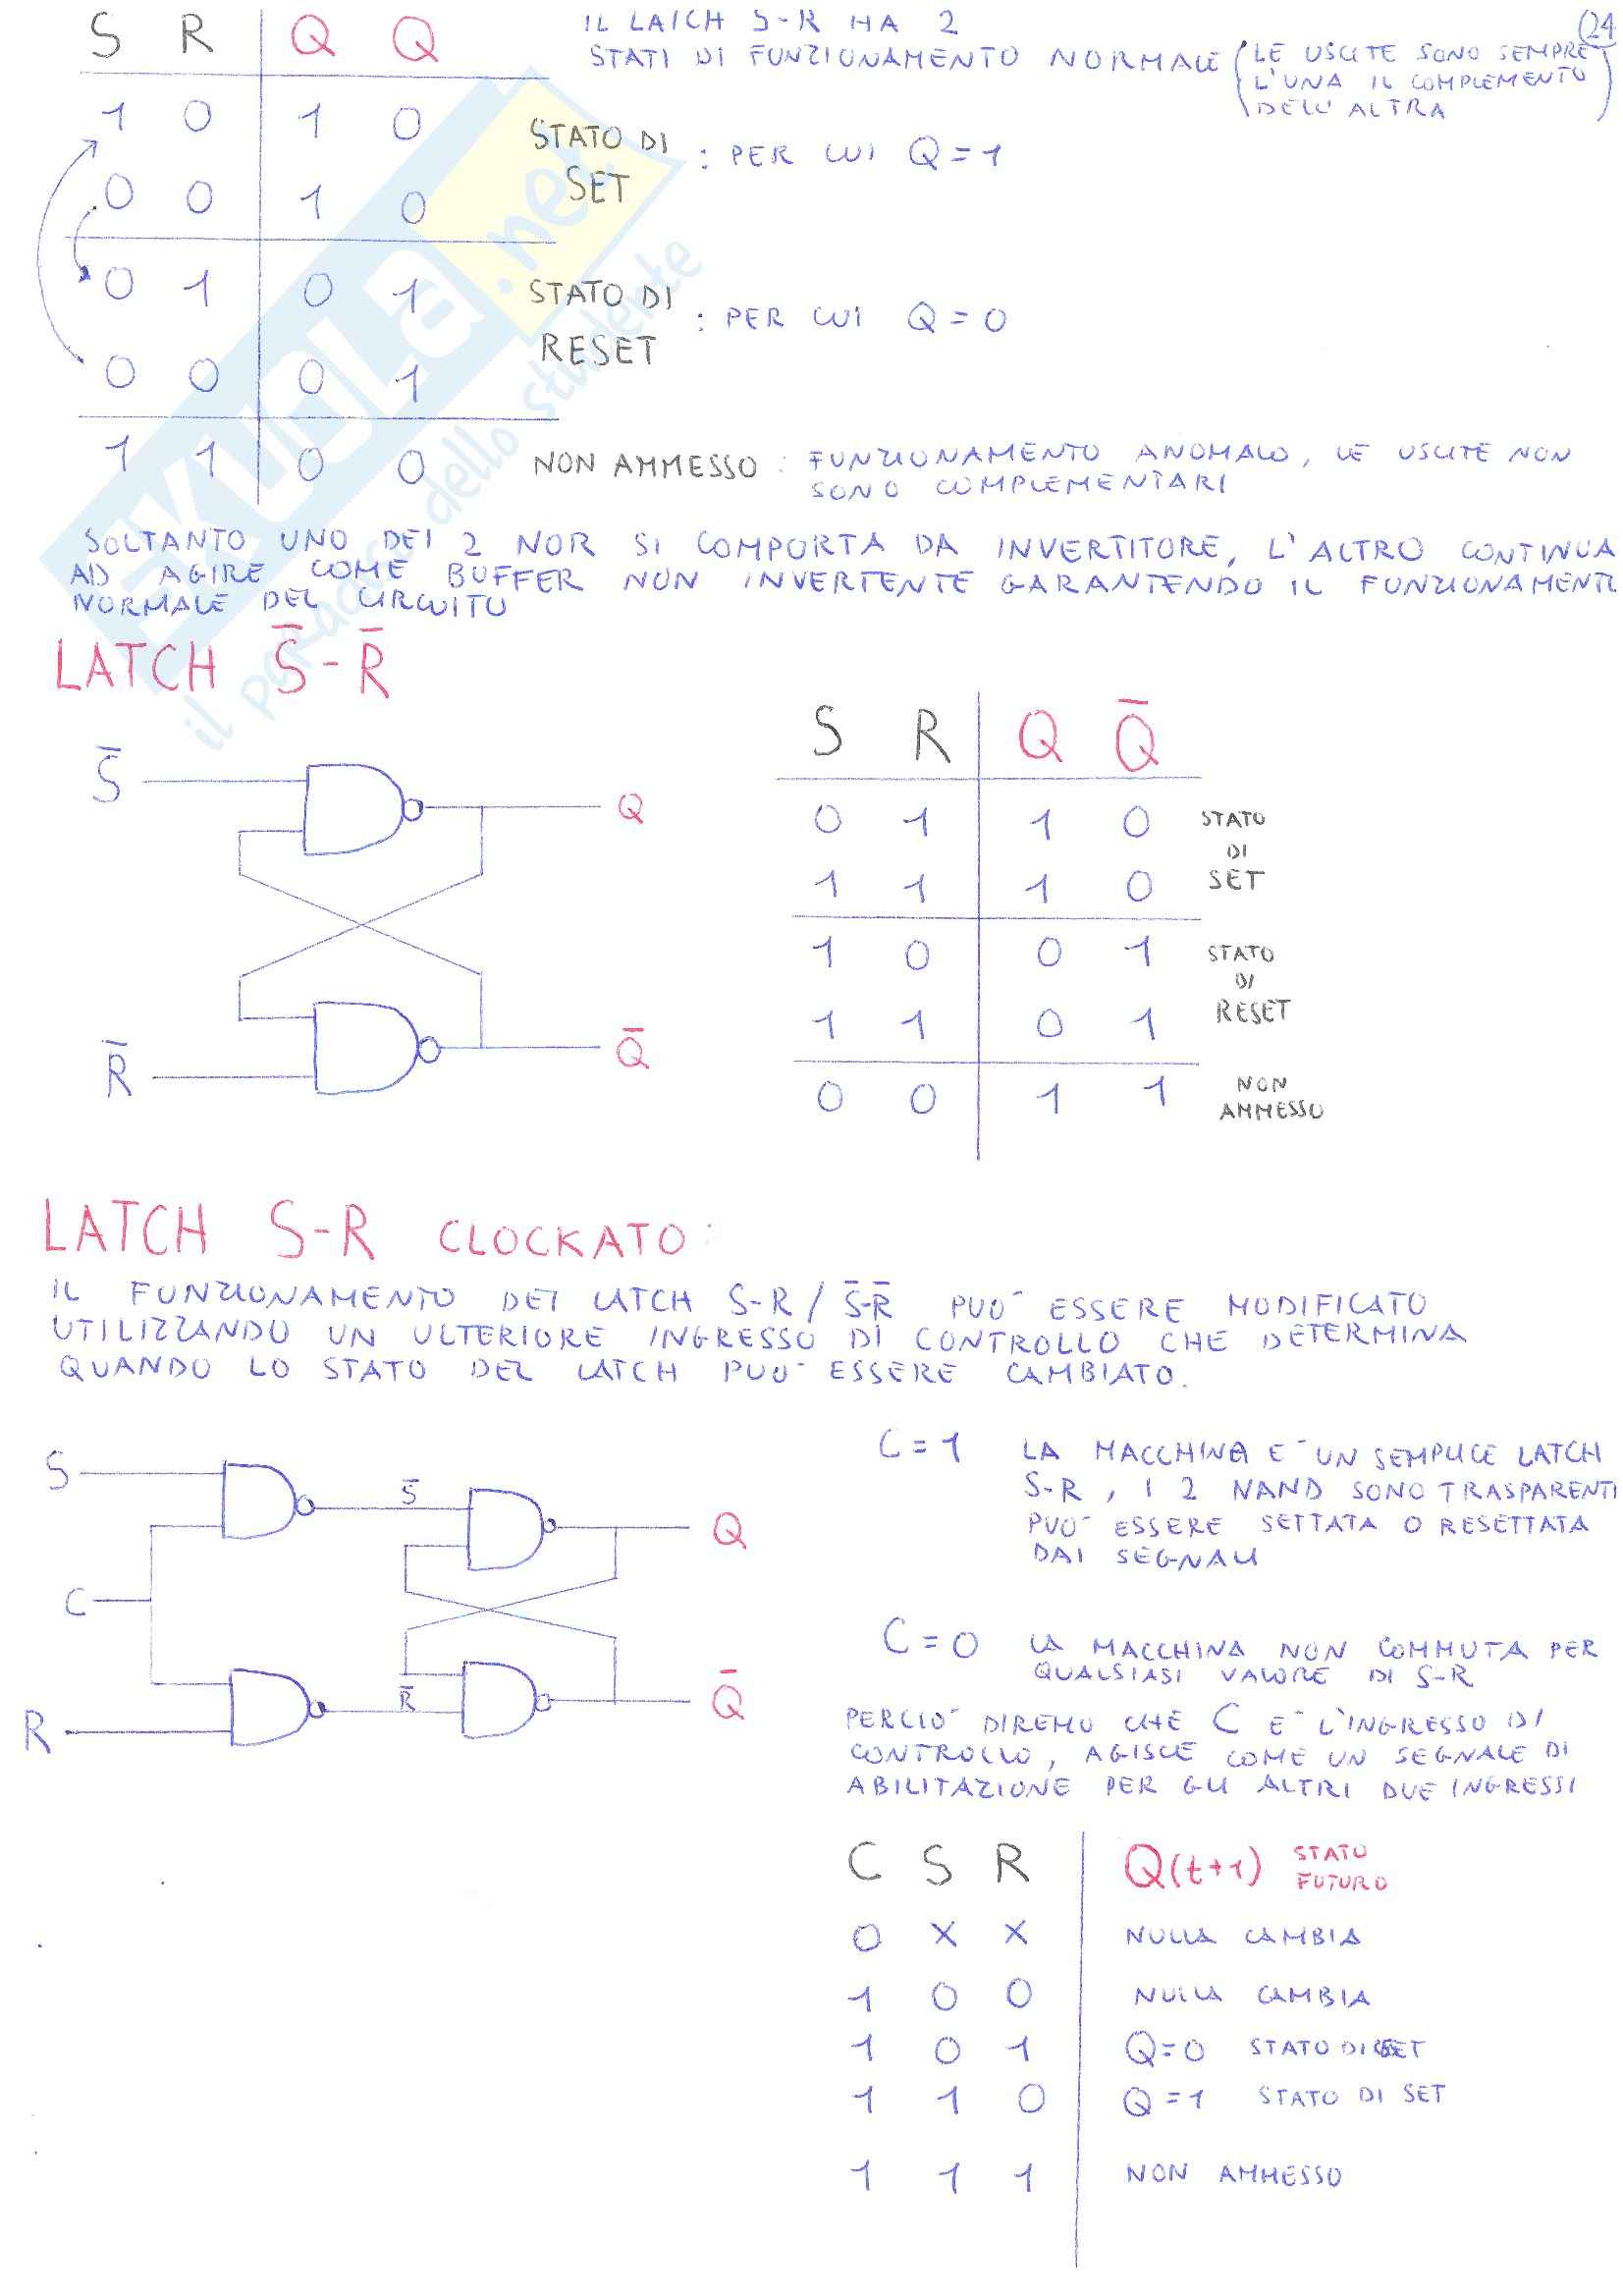 (24
S R Q Q
IL LATCH S-R HA 2
STATI DI FUNZIONAMENTO NORMALE (LE USCITE SONO SEMPRE
L'UNA IL COMPLEMENTO
DELL'ALTRA)
1 0 1 0
0 0 1 0
STATO DI
SET
: PER CUI Q=1
0 1 0 1
0 0 0 1
STATO DI
RESET
: PER CUI Q=0
1 1 0 0
NON AMMESSO : FUNZIONAMENTO ANOMALO, LE USCITE NON
SONO COMPLEMENTARI
SKUOLA.net
il paradiso dello studente
SOLTANTO UNO DEI 2 NOR SI COMPORTA DA INVERTITORE, L'ALTRO CONTINUA
AD AGIRE COME BUFFER NON INVERTENTE GARANTENDO IL FUNZIONAMENT
NORMALE DEL CIRCUITO
LATCH S̅-R̅
S̅
Q
R̅
Q̅
S R Q Q̅
0 1 1 0
1 1 1 0
STATO
DI
SET
1 0 0 1
1 1 0 1
STATO
DI
RESET
0 0 1 1
NON
AMMESSO
LATCH S-R CLOCKATO:
IL FUNZIONAMENTO DEI LATCH S-R / S̅-R̅ PUO' ESSERE MODIFICATO
UTILIZZANDO UN ULTERIORE INGRESSO DI CONTROLLO CHE DETERMINA
QUANDO LO STATO DEL LATCH PUO' ESSERE CAMBIATO.
S
S̅
Q
C
R
R̅
Q̅
C=1 LA MACCHINA E' UN SEMPLICE LATCH
S-R, I 2 NAND SONO TRASPARENTI
PUO' ESSERE SETTATA O RESETTATA
DAI SEGNALI
C=0 LA MACCHINA NON COMMUTA PER
QUALSIASI VALORE DI S-R
PERCIO' DIREMO CHE C E' L'INGRESSO DI
CONTROLLO, AGISCE COME UN SEGNALE DI
ABILITAZIONE PER GLI ALTRI DUE INGRESSI
C S R Q(t+1) STATO
FUTURO
0 X X NULLA CAMBIA
1 0 0 NULLA CAMBIA
1 0 1 Q=0 STATO DI
1 1 0 Q=1 STATO DI SET
1 1 1 NON AMMESSO